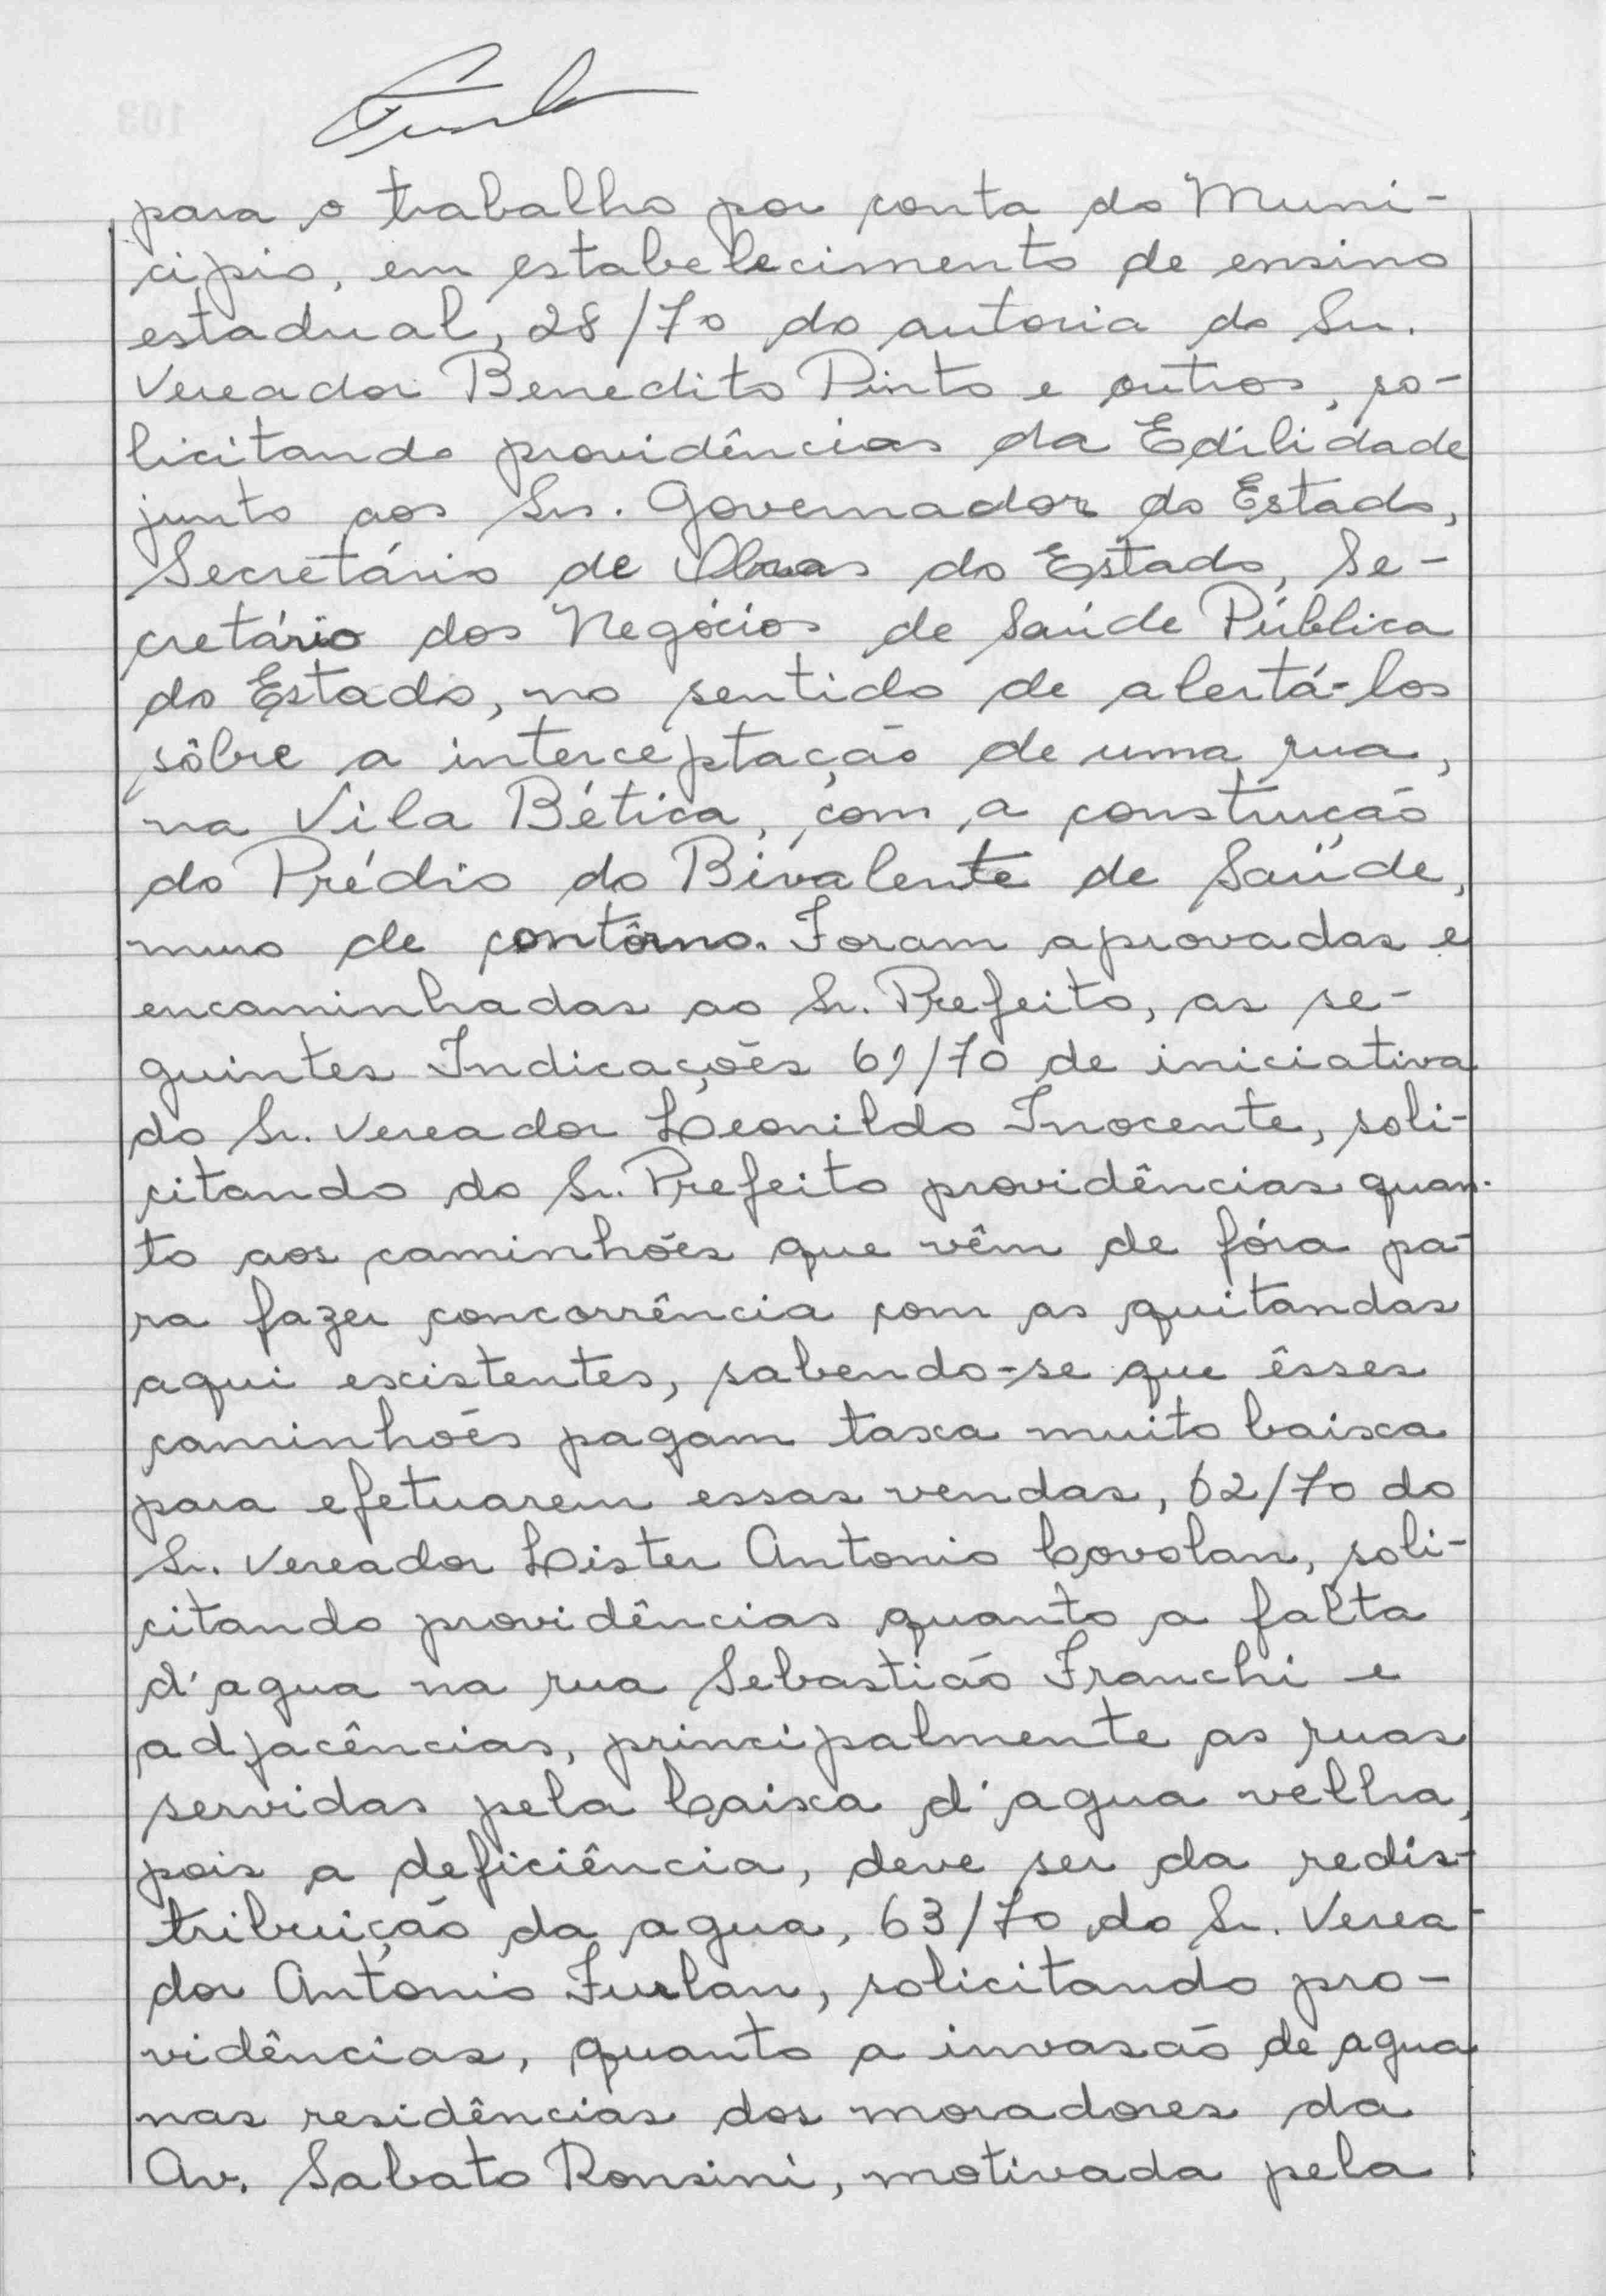 para o trabalho por conta do Muni-
cipio, em estabelecimento de ensino
estadual, 28/70 do autoria do Sr.
Vereador Benedito Pinto e outros, so-
licitando providências da Edilidade
junto aos Srs. Governador do Estado,
Secretário de Obras do Estado, Se-
cretário dos Negócios de Saúde Pública
do Estado, no sentido de alertá-los
sôbre a interceptação de uma rua,
na Vila Bética, com a construção
do Prédio do Bivalente de Saúde,
muro de contôrno. Foram aprovadas e
encaminhadas ao Sr. Prefeito, as se-
guintes Indicações 61/70 de iniciativa
do Sr. Vereador Leonildo Inocente, soli-
citando do Sr. Prefeito providências quan-
to aos caminhões que vêm de fóra pa-
ra fazer concorrência com as quitandas
aqui existentes, sabendo-se que êsses
caminhões pagam taxa muito baixa
para efetuarem essas vendas, 62/70 do
Sr. Vereador Lister Antonio Covolan, soli-
citando providências quanto a falta
d'agua na rua Sebastião Franchi e
adjacências, principalmente as ruas
servidas pela Caixa d'agua velha,
pois a deficiência, deve ser da redis-
tribuição da agua, 63/70 do Sr. Verea-
dor Antonio Furlan, solicitando pro-
vidências, quanto a invasão de agua
nas residências dos moradores da
Av. Sabato Ronsini, motivada pela